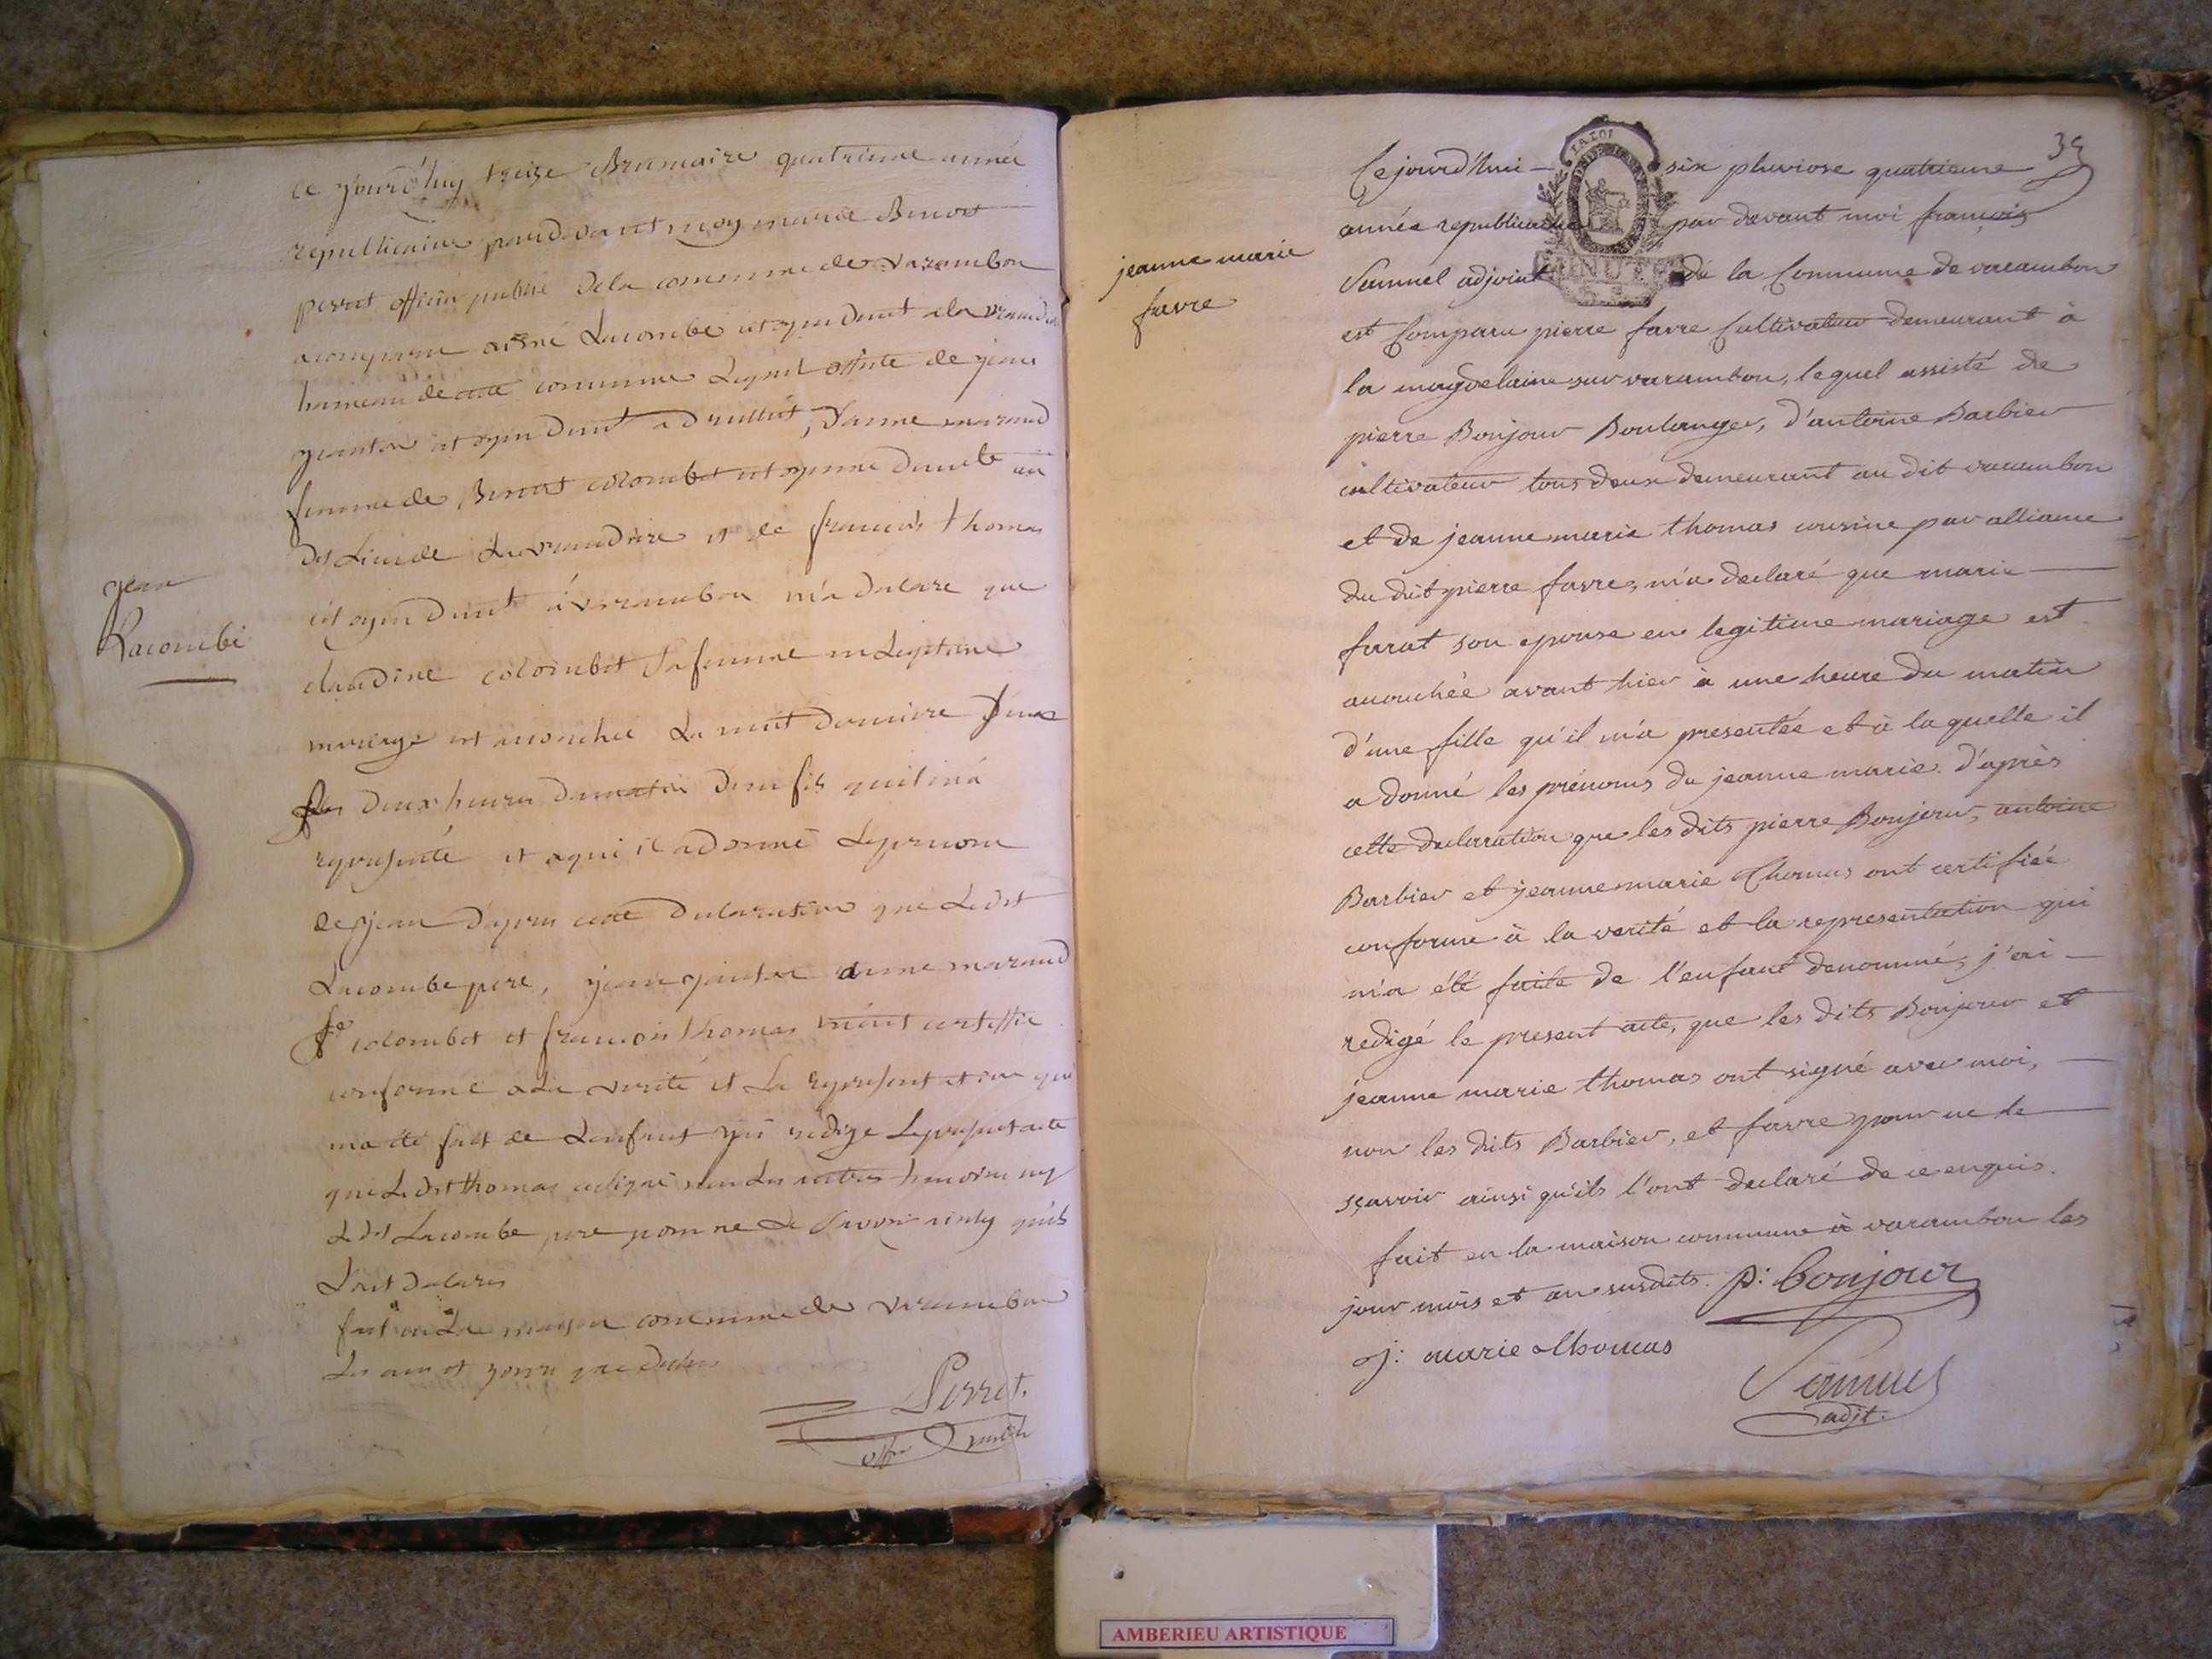 ce jourd'huy treize Brumaire quatrieme année
republicaine pardevant moy marie Benoit
perret officier public dela commune de varambon
acomparu aimé Lacombe citoyen dnut ala
hameau de cette commune Lequel assisté de jean
janton citoyen dnut a druillat, D'anne maraud
femme de Benoit colombet citoyenne dnute au
dit Lieu de et de francois thomas
jean
Lacombe
citoyen dnut a varambon m'a declare que
claudine colombet sa femme en Legitime
mariage est acouchée La nuit derniere
deux heures du matin d'un fils quil m'a
represente et aqui il a donné Leprenom
de jean d'apres cette declaration que Ledit
Lacombe pere, jean janton anne maraud
fe colombet et francois thomas m'ont certiffie
conforme a La verité et La representation qui
ma été fait de Lenfant j'ai redige Lepresent acte
que Ledit thomas a signé non Les autres ny
Ledit Lacombe pere pour ne Le savoir ainsy quils
Lont declares
fait en La maison commune de varambon
Les an et jour que dessus
Perret.
offier public
35
Cejourd'hui - six pluviose quatrieme
LA LOI
MINUTE
année republicaine par devant moi françois
jeanne marie
favre
Samuel adjoint de la Commune de varambon
est Comparu pierre favre Cultivateur demeurant à
la magdelaine sur varambon, lequel assisté de
pierre Bonjour Boulanger, d'antoine Barbier
cultivateur tous deux demeurant au dit varambon
et de jeanne marie thomas cousine par alliance
du dit pierre favre, m'a declaré que marie
farat son epouse en legitime mariage est
accouchée avant hier à une heure du matin
d'une fille qu'il m'a presentée et à laquelle il
a donné les prénoms de jeanne marie. d'après
cette declaration que les dits pierre Bonjour, antoine
Barbier et jeanne marie Thomas ont certifiée
conforme à la verité et la representation qui
m'a été faite de l'enfant denommé, j'ai
redigé le present acte, que les dits Bonjour et
jeanne marie thomas ont signé avec moi,
non les dits Barbier, et favre pour ne le
sçavoir ainsi qu'ils l'ont declaré de ce enquis.
fait en la maison commune à varambon les
jour mois et an susdits. p: bonjour
j: marie thomas
Samuel
adjt.
AMBERIEU ARTISTIQUE